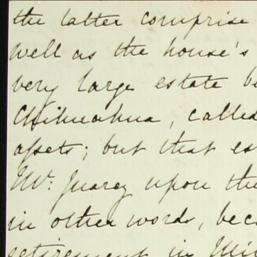 the latter comprise
well as the house's
very large estate be
Chihuahua, called
assets; but that es
Mr. Juarez upon the
in other words, bec
retirement in Mi